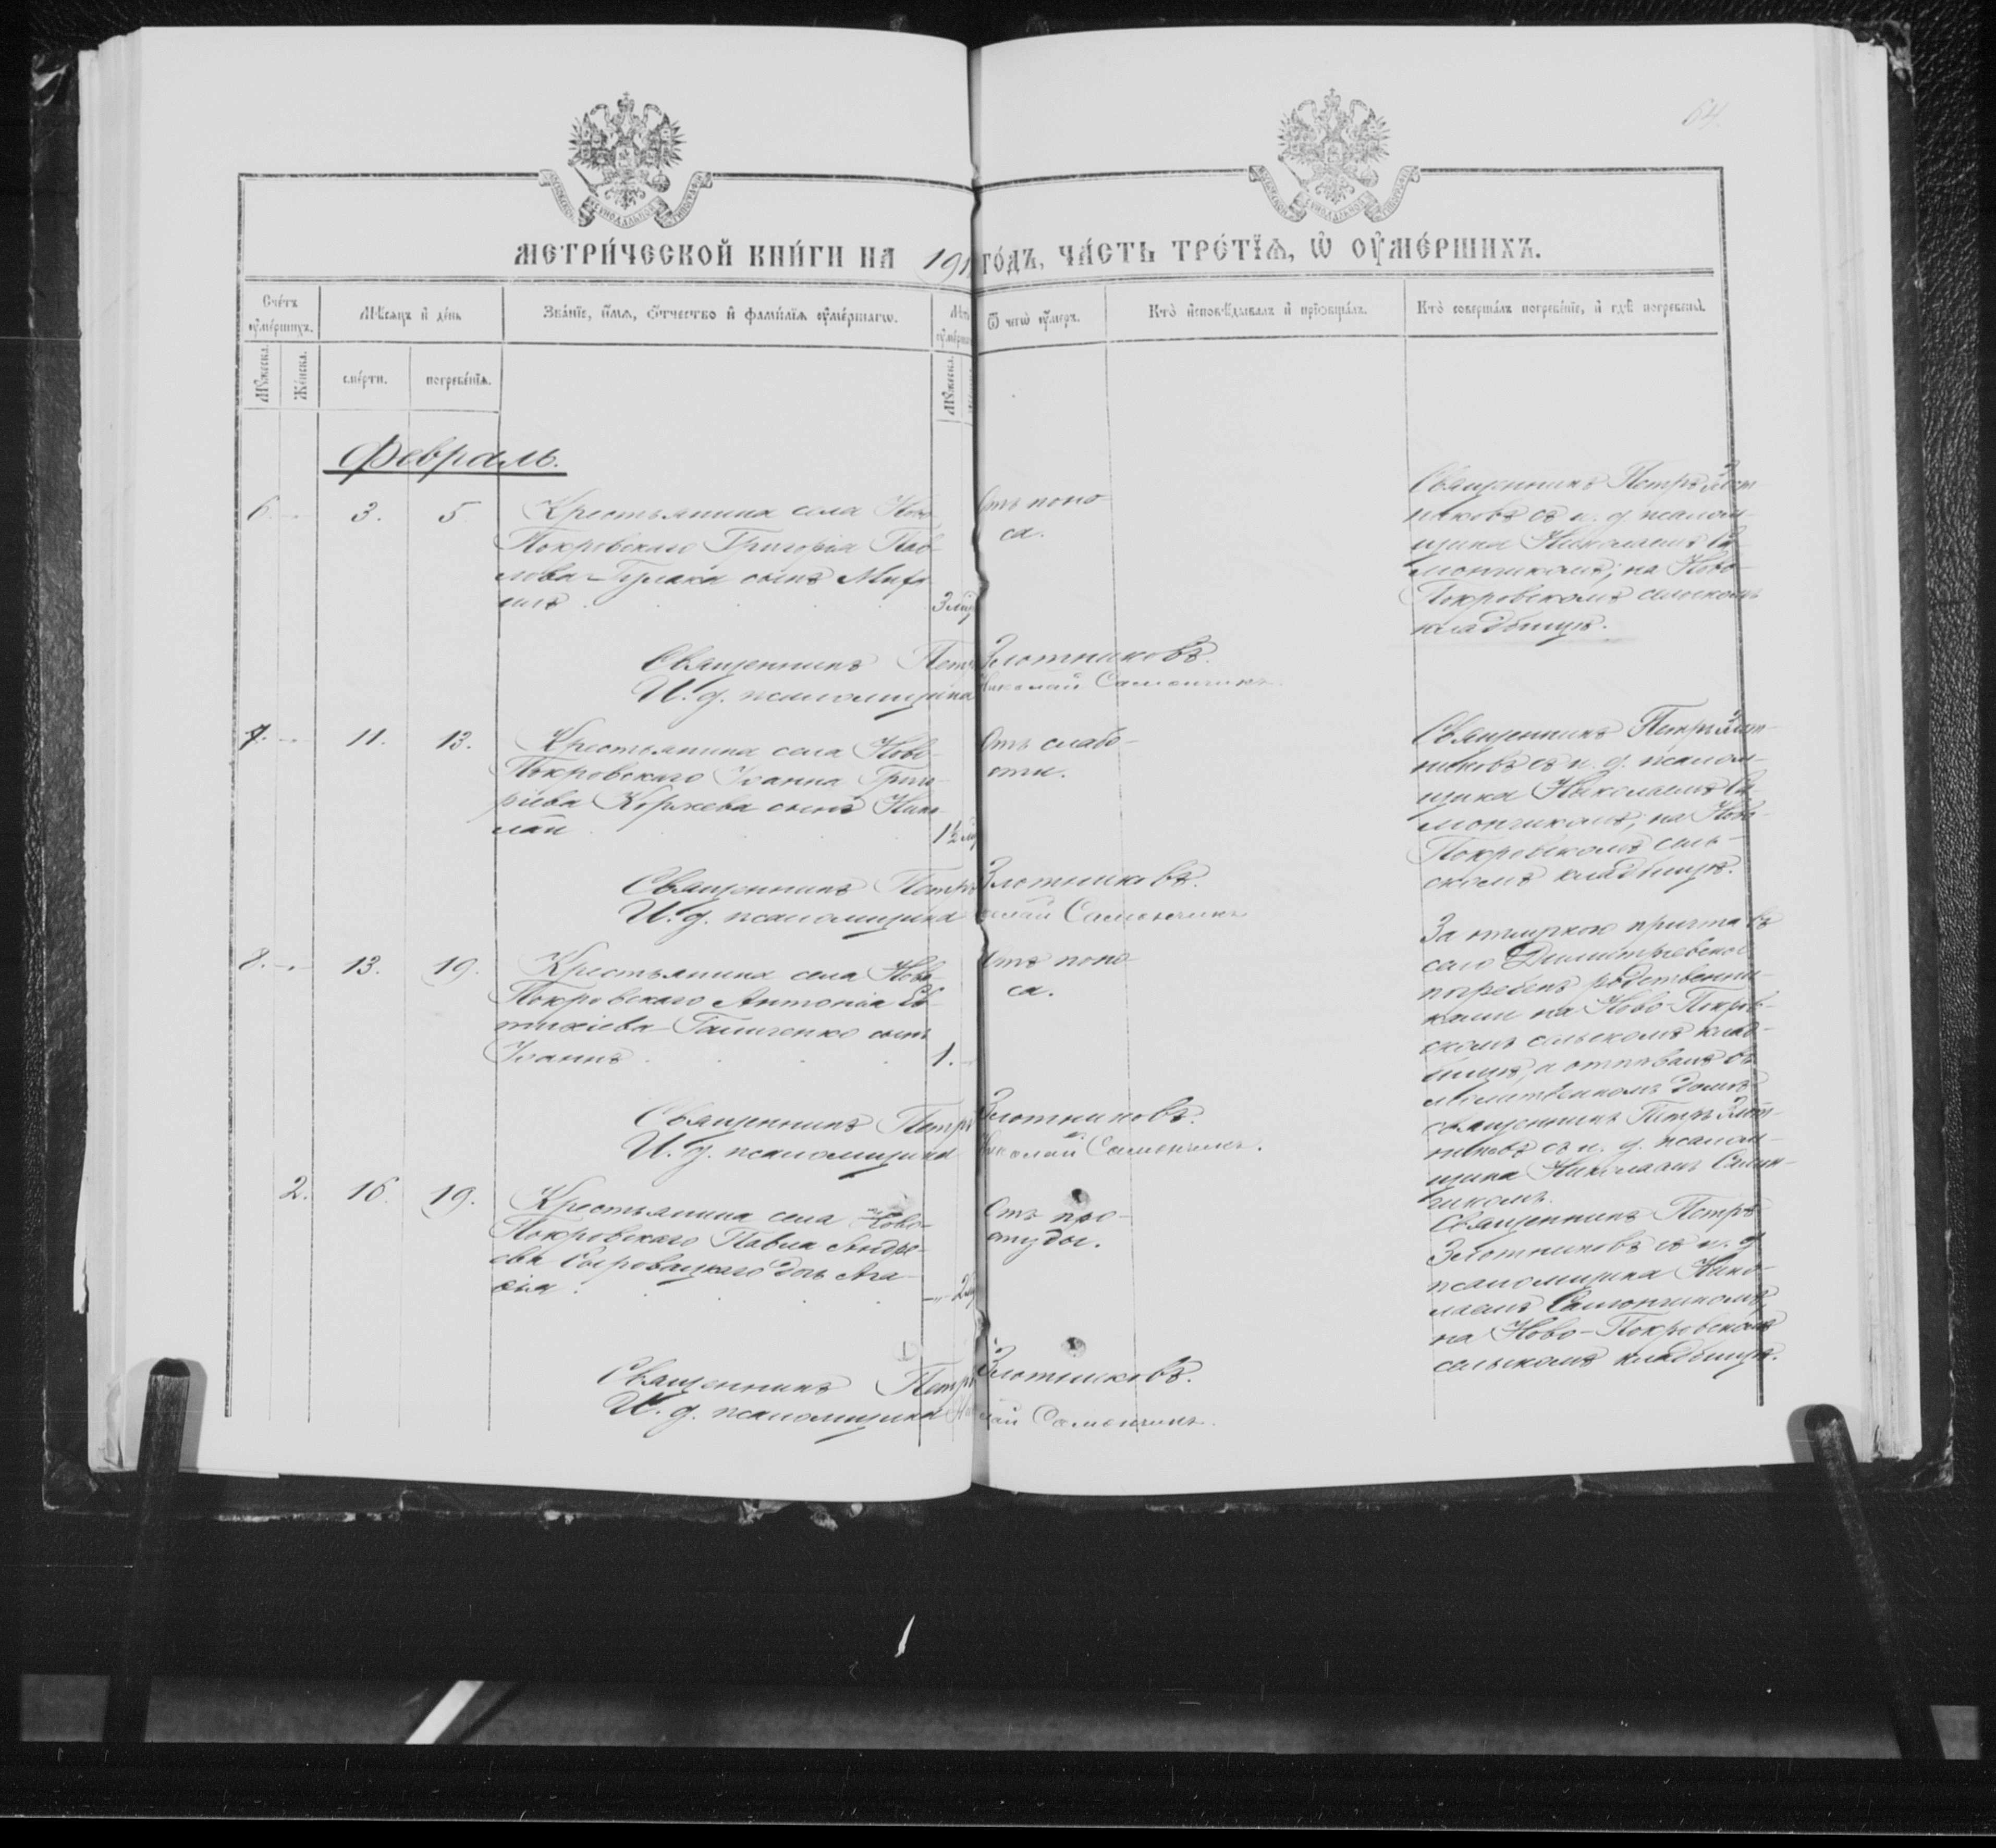 64.
МЕТРИ́ЧЕСКОЙ КНИ́ГИ НА 191 ГО́ДЪ, ЧА́СТЬ ТРЕ́ТЇѦ, Ѡ҆ ОУ҆МЕ́РШИХЪ.
Сче́тъ оу҆ме́ршихъ.
Мꙋ́жеска.
Же́нска.
Мѣ́сяцъ и҆ де́нь
сме́рти.
погребе́нїѧ.
Зва́нїе, и҆́мѧ, ѻ҆́тчество и҆ фами́лїѧ оу҆ме́ршагѡ.
Мꙋ́жеска.
Ѿ чегѡ̀ оу҆́меръ.
Кто̀ и҆сповѣ́дывалъ и҆ прїѡбща́лъ.
Кто̀ соверша́лъ погребе́нїе, и҆ гдѣ̀ погребены̀.
Февраль.
6. 3. 5.
Крестьянина села Ново-
Покровскаго Григорія Пав-
лова
сынъ
3 мѣ
Отъ поно-
са.
Священникъ Петръ Злот-
никовъ съ и. д. псалом-
щика Николаемъ Са-
мончикомъ; на Ново-
Покровскомъ сельскомъ
кладбищѣ.
Священникъ Петръ Злотниковъ.
И. д. псаломщика Николай Самончикъ.
7. 11. 13.
Крестьянина села Ново-
Покровскаго Іоанна Григо-
рьева Коржева сынъ Нико-
лай
1½ мѣ
Отъ слабо-
сти.
Священникъ Петръ Злот-
никовъ съ и. д. псалом-
щика Николаемъ Са-
мончикомъ; на Ново-
Покровскомъ сель-
скомъ кладбищѣ.
Священникъ Петръ Злотниковъ.
И. д. псаломщика Николай Самончикъ
8. 13. 19.
Крестьянина села Ново-
Покровскаго Антонія Ев-
тихіева сынъ
Іоаннъ
1.
Отъ поно-
са.
За отлучкою причта въ
село Димитріевское
погребенъ родственни-
ками на Ново-Покров-
скомъ сельскомъ клад-
бищѣ, а отпѣвалъ въ
молитвенномъ домѣ
священникъ Петръ Злот-
никовъ съ и. д. псалом-
щика Николаемъ Самон-
чикомъ.
Священникъ Петръ Злотниковъ.
И. д. псаломщика Николай Самончикъ.
2. 16. 19.
Крестьянина села Ново-
Покровскаго Павла Андре-
ева Сыровацкаго дочь Ага-
ѳія
2 мѣ
Отъ про-
студы.
Священникъ Петръ
Злотниковъ съ и. д.
псаломщика Нико-
лаемъ Самончикомъ,
на Ново-Покровскомъ
сельскомъ кладбищѣ.
Священникъ Петръ Злотниковъ.
И. д. псаломщика Николай Самончикъ.